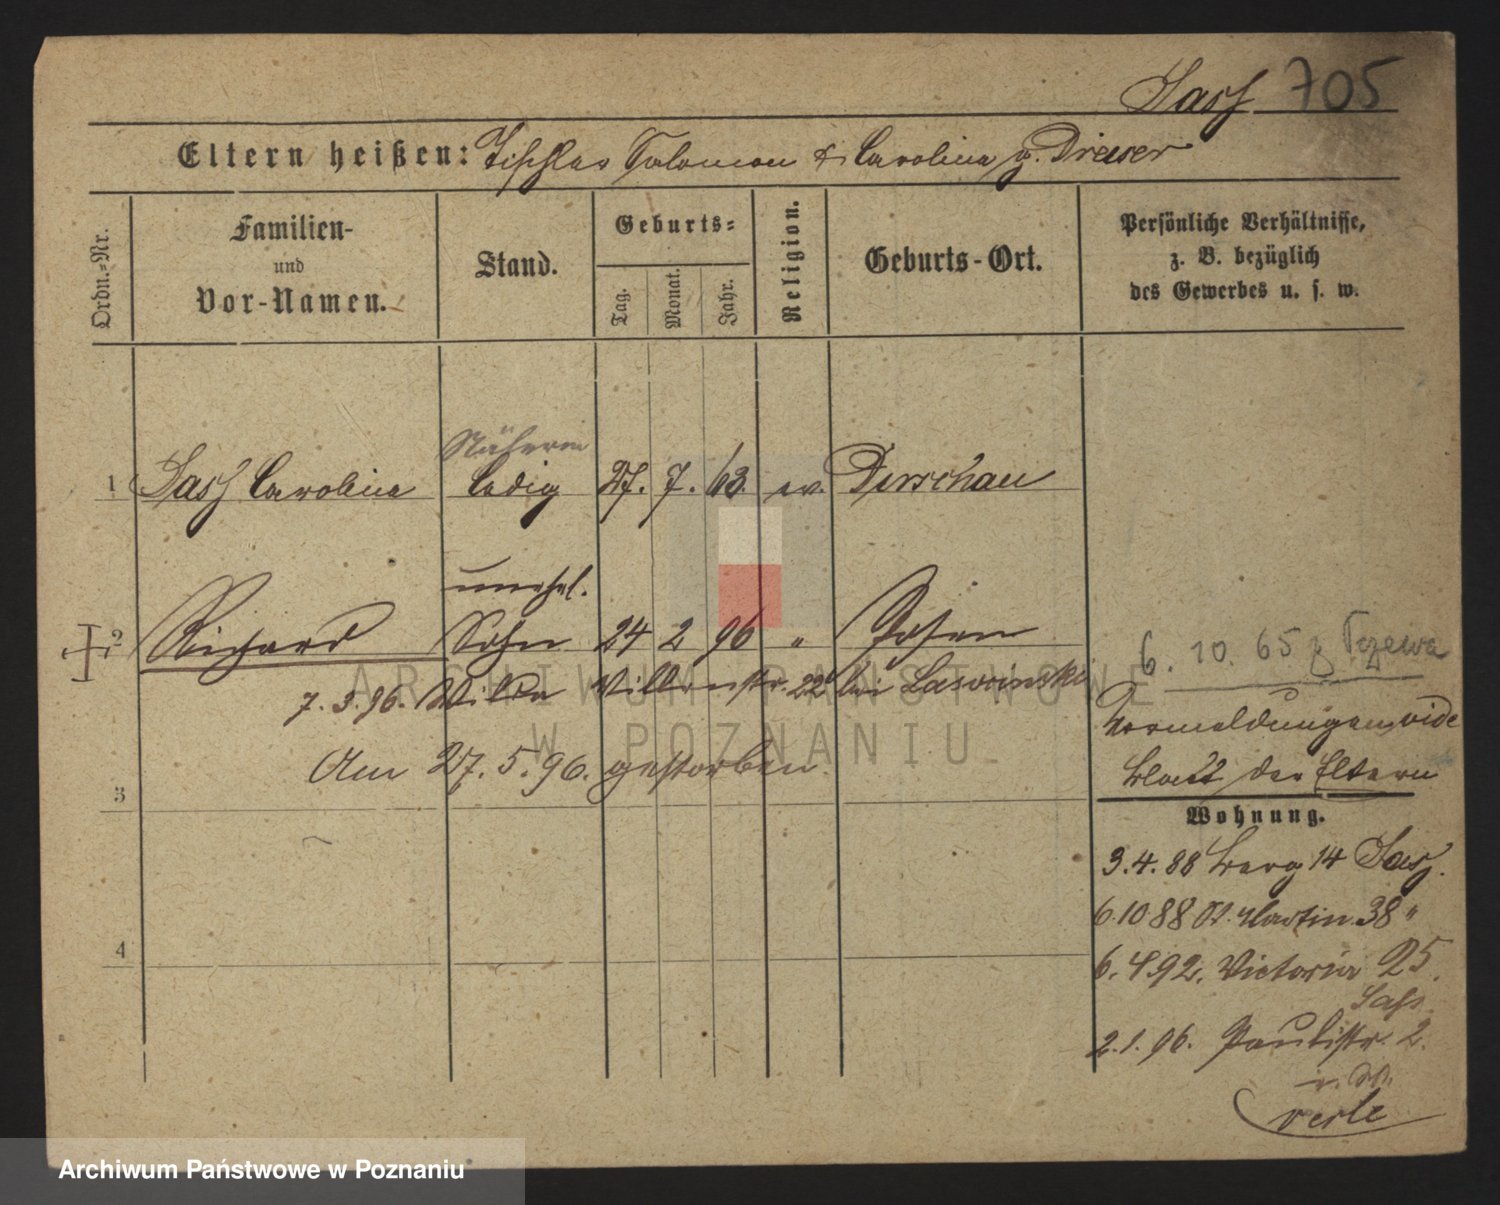 Sass 705
Eltern heißen: Tischler Salomon & Carolina g. Dreuer
Ordn.-Nr.
Familien-
und
Vor-Namen.
Stand.
Geburts-
Tag.
Monat.
Jahr.
Religion.
Geburts-Ort.
Persönliche Verhältnisse,
z. B. bezüglich
des Gewerbes u. s. w.
Näherin
1 Sass Carolina ledig 27. 7. 63. ev. Dirschau
unehel.
2 Richard Sohn 24 2 96 " Posen
6. 10. 65
7. 3. 96. Wilda 22 bei
Vormeldungen vide
Am 27. 5. 96. gestorben.
Blatt der Eltern
3
Wohnung.
3. 4. 88 Berg 14 Sass.
6. 10 88 St. Martin 38 "
4
6. 4 92. Victoria 25.
Sass
2. 1. 96. Paulistr. 2.
verte
ARCHIWUM PAŃSTWOWE
W POZNANIU
Archiwum Państwowe w Poznaniu